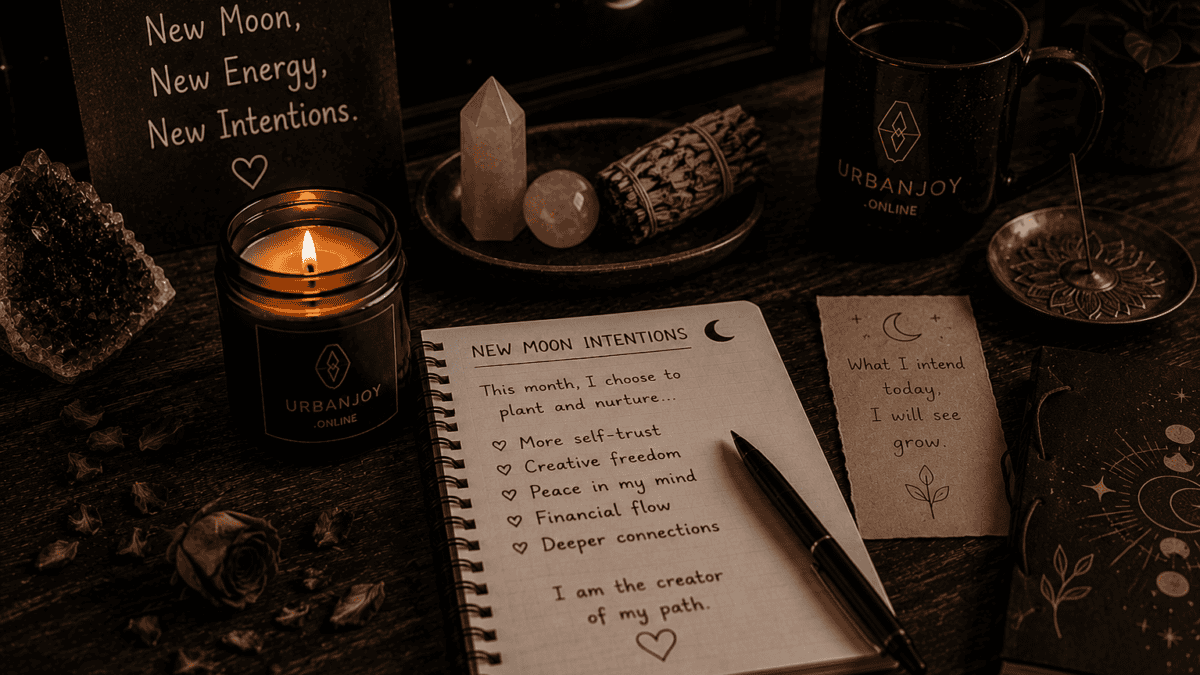 New Moon,
New Energy,
New Intentions.
URBANJOY
.ONLINE
URBANJOY
.ONLINE
NEW MOON INTENTIONS
This month, I choose to
plant and nurture...
More self-trust
Creative freedom
Peace in my mind
Financial flow
Deeper connections
I am the creator
of my path.
What I intend
today,
I will see
grow.